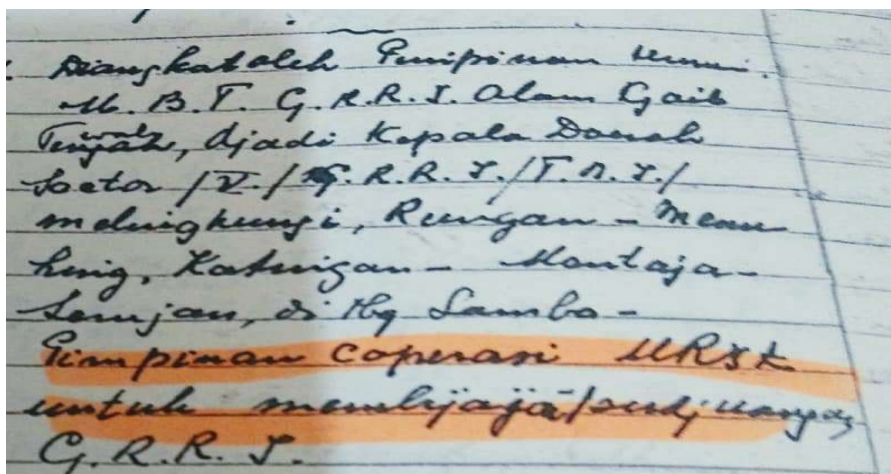 Diangkat oleh Pimpinan Umum.
M. B. T. G. R. R. I. Alam Gaib
djadi Kepala Daerah
Sector /V./ G. R. R. I./T. N. I./
melingkungi, Rungan - Manu
hing, Katingan - Mentaja -
di Tbg Samba -
Pimpinan Coperasi
untuk membijaja/perdjuangan
G. R. R. I.